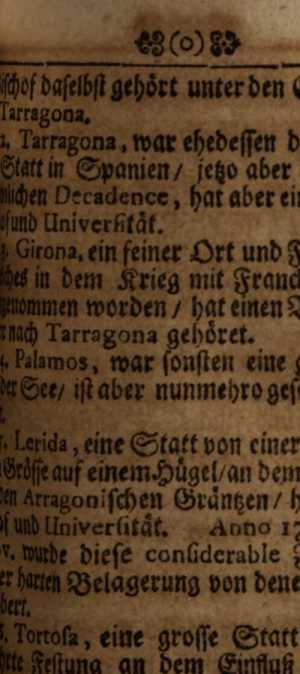 (o)
schof daselbst gehört unter den
Tarragona.
2. Tarragona, war ehedessen d
Statt in Spanien / jetzo aber
mlichen Decadence, hat aber ei
of und Universität.
3. Girona, ein feiner Ort und F
ches in dem Krieg mit Franc
genommen worden / hat einen B
r nach Tarragona gehöret.
4. Palamos, war sonsten eine g
der See / ist aber nunmehro gesc
5. Lerida, eine Statt von einer
Grösse auf einem Hügel / an dem
den Arragonischen Gräntzen / h
of und Universität. Anno 17
v. wurde diese considerable
er harten Belagerung von dene
bert.
6. Tortosa, eine grosse Statt
Festung an dem Einfluß